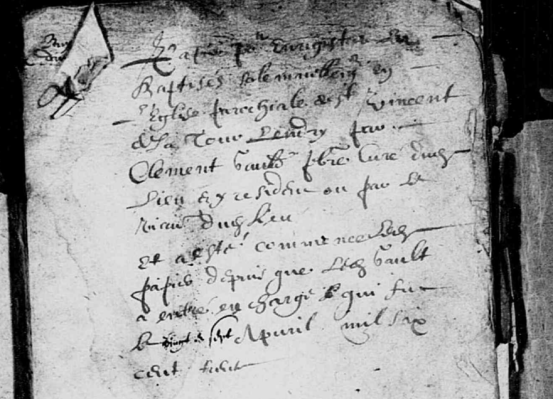 Papier pour enregistrer les
Baptisés solemnellemt en
l'Eglise parochiale de St Vincent
de la Tour Landry par
Clement Vault pbre Curé dudt
Lieu et y resident ou par le
vicaire dudt lieu
Et a esté commencé ledt
papier depuis que ledt Vault
entré en charge qui fut
le vingt et sept Apvril mil six
cent